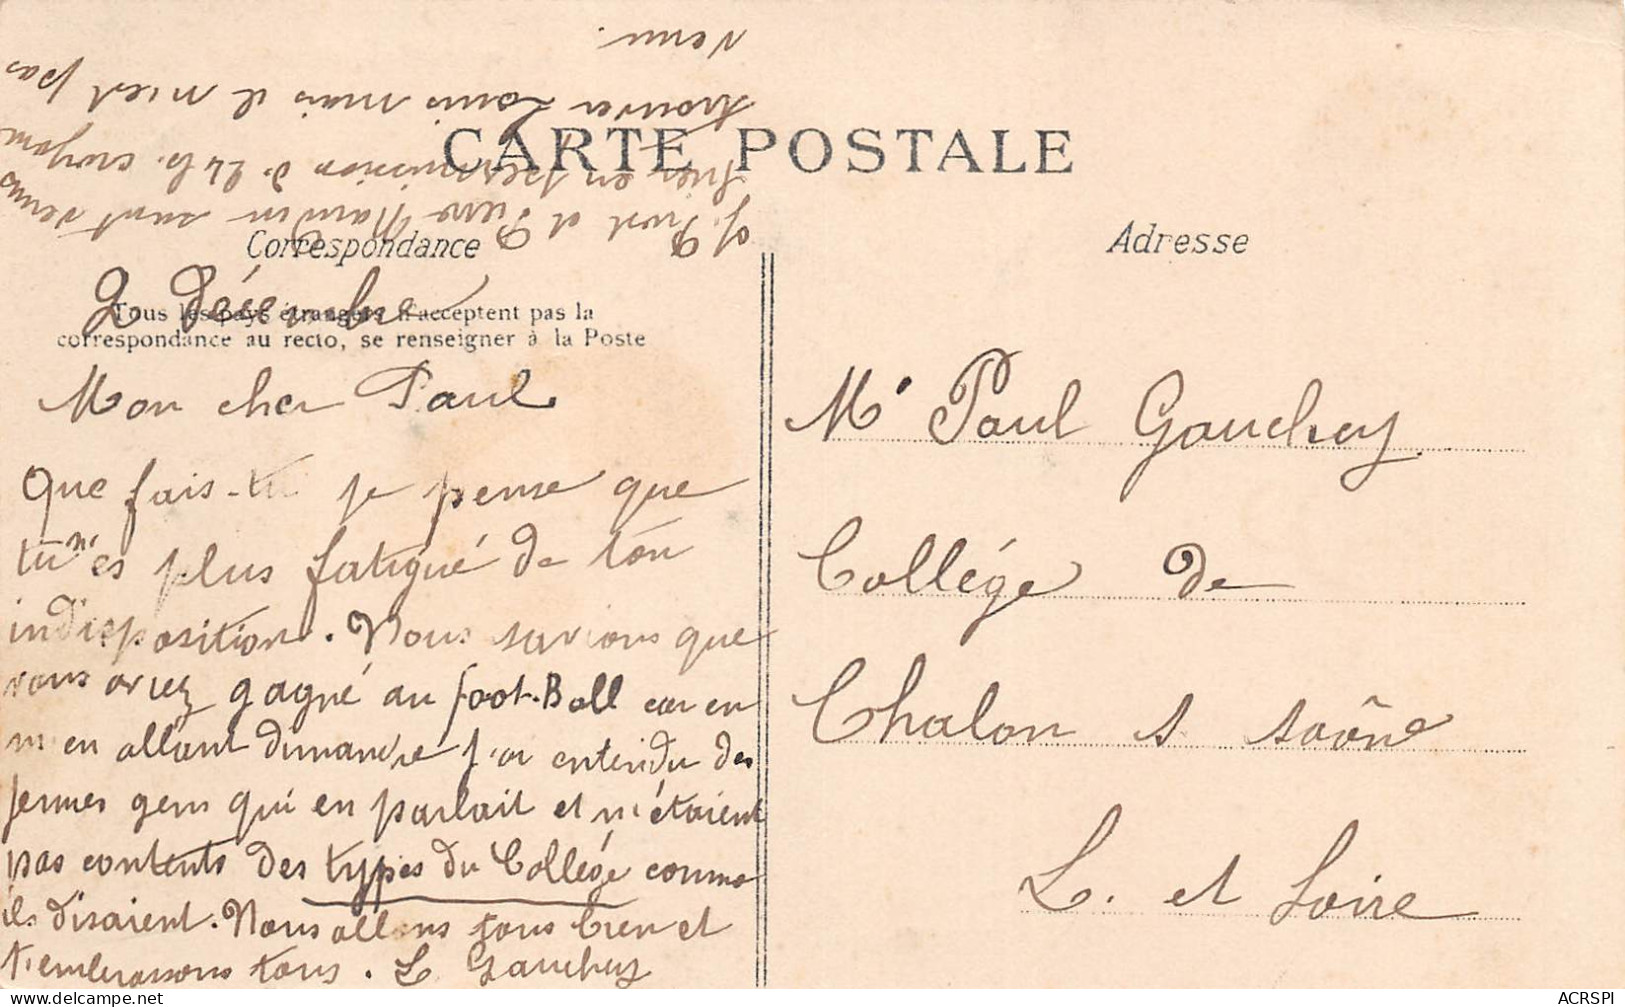 CARTE POSTALE
Correspondance
Adresse
Tous les pays étrangers n'acceptent pas la
correspondance au recto, se renseigner à la Poste
2 Décembre
Mon cher Paul
Que fais-tu je pense que
tu n'es plus fatigué de ton
indisposition. Nous savions que
vous aviez gagné au foot-Ball car en
m'en allant dimanche j'ai entendu des
jeunes gens qui en parlait et n'étaient
pas contents des types du Collége comme
ils disaient. Nous allons tous bien et
t'embrassons tous. L Gauchey
et Pierre sont venus
hier en permission d. 24 h. croyant
trouver Louis mais il n'est pas
venu.
Mr Paul Gauchey
Collége de
Chalon s saône
S. et Loire
ACRSPI